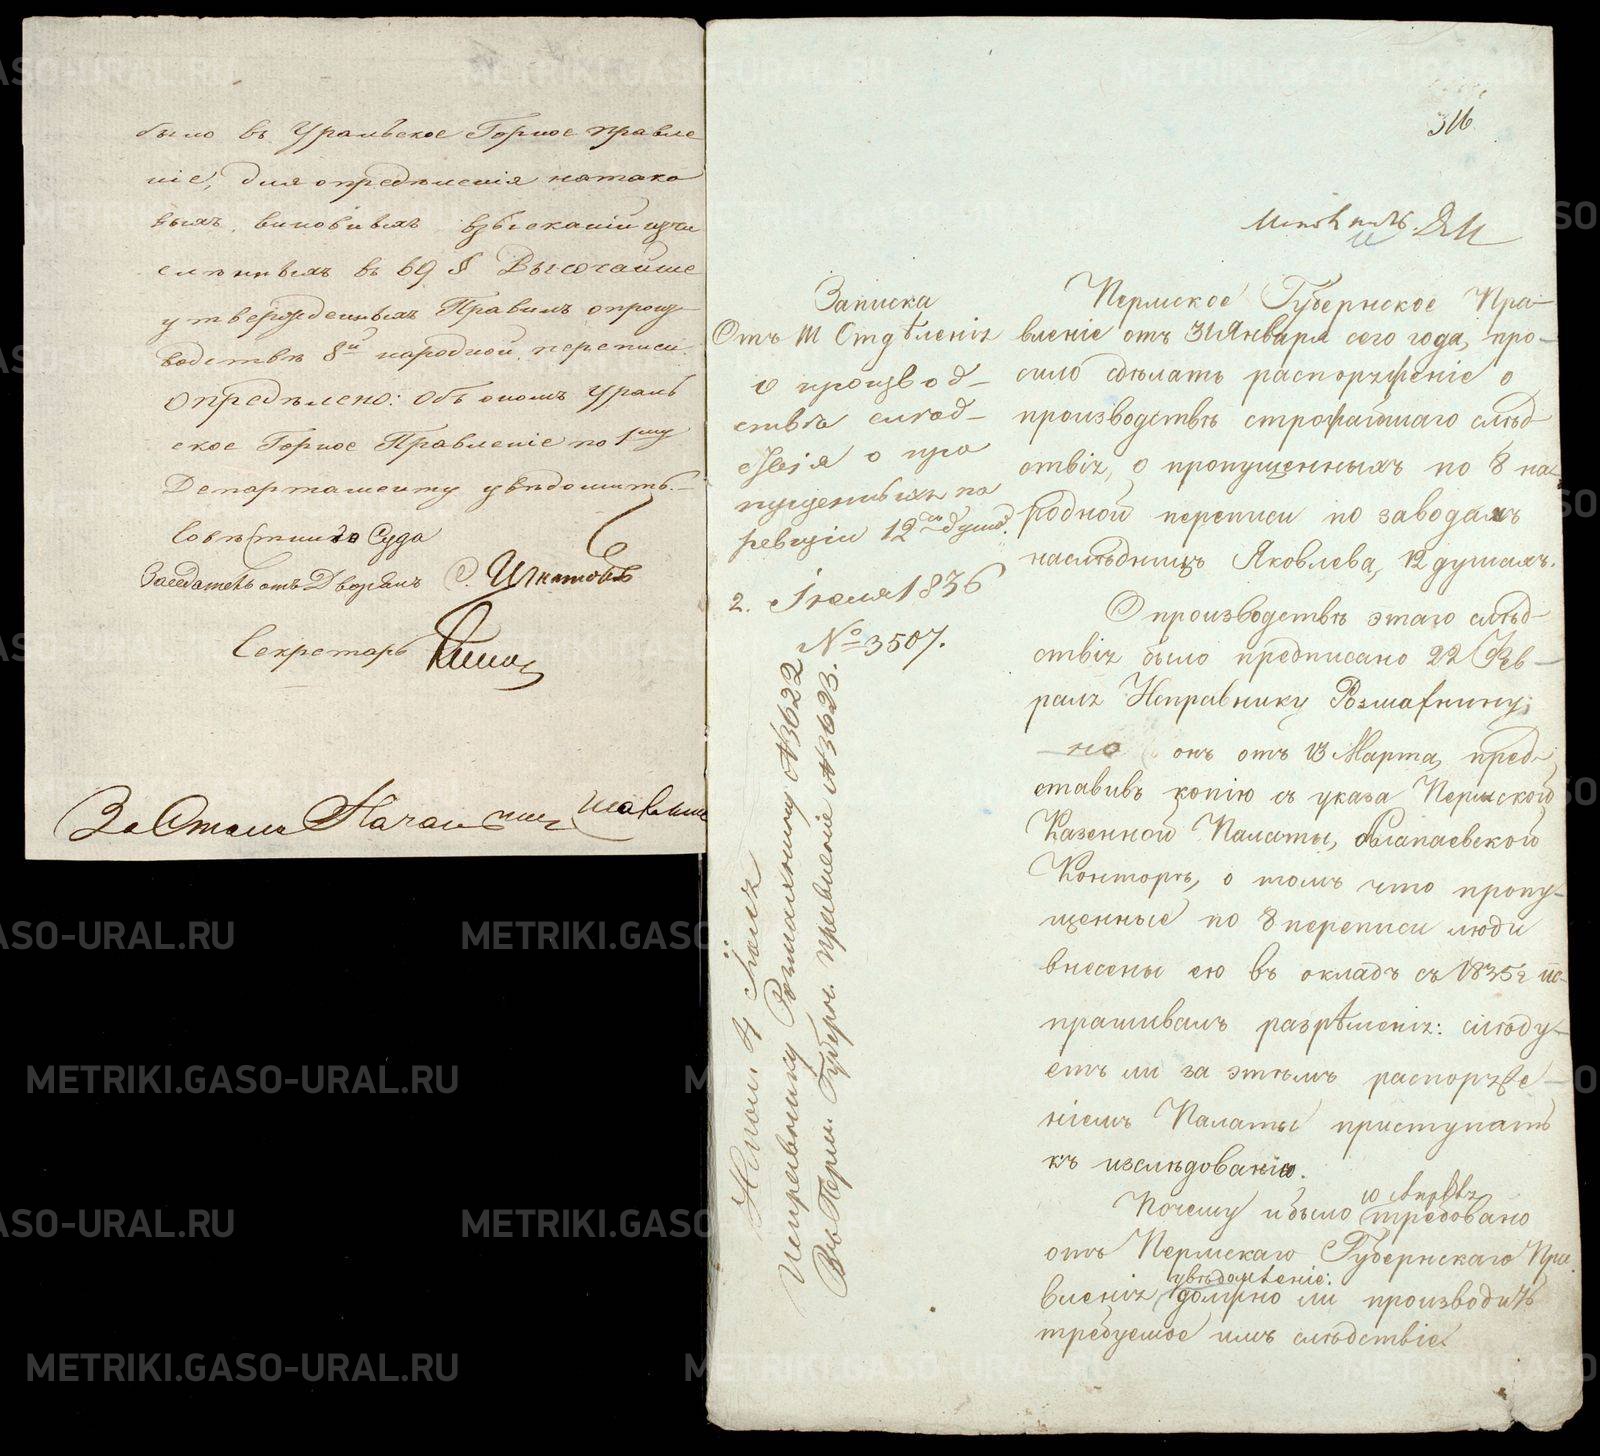 было въ Уральское Горное правле
ніе, для опредѣленія натако
выхъ виновныхъ взысканій изчи
сленныхъ въ 69 § Высочайше
утвержденныхъ Правилъ опроиз-
водствѣ 8й народной переписи.
Опредѣлено: объ ономъ Ураль
ское Горное Правленіе по 1му
Департаменту увѣдомить.
Совѣстнаго Суда
Заседатель отъ Дворянъ С. Игнатовъ
Секретарь
За Стола Начальника
316
Записка
Отъ III Отдѣленія
о производ-
ствѣ слѣд-
ствія о про
пущенныхъ по
ревизіи 12ти душъ.
2. Іюля 1836
№ 3507.
Испол. 4 Іюля
Исправнику Розмахнину №3622
Въ Перм. Губерн. правленіе №3623.
Пермское Губернское Пра-
вленіе отъ 31 Января сего года, про-
сило сдѣлать распоряженіе о
производствѣ строжайшаго слѣд
ствія, о пропущенныхъ по 8 на-
родной переписи по заводамъ
наслѣдницъ Яковлева, 12 душахъ.
О производствѣ этаго слѣд-
ствія было предписано 22 Фев-
раля Исправнику Розмахнину;
но онъ отъ 13 Марта, пред-
ставивъ копію съ указа Пермской
Казенной Палаты, Алапаевской
Конторѣ, о томъ что пропу-
щенные по 8 переписи люди
внесены ею въ окладъ съ 1835 г. ис-
прашивалъ разрѣшенія: слѣду-
етъ ли за этимъ распоряже-
ніемъ Палаты приступать
къ изслѣдованію.
Почему и было 10 Апрѣля требовано
отъ Пермскаго Губернскаго Пра
вленія увѣдомленіе: должно ли производить
требуемое имъ слѣдствіе
METRIKI.GASO-URAL.RU